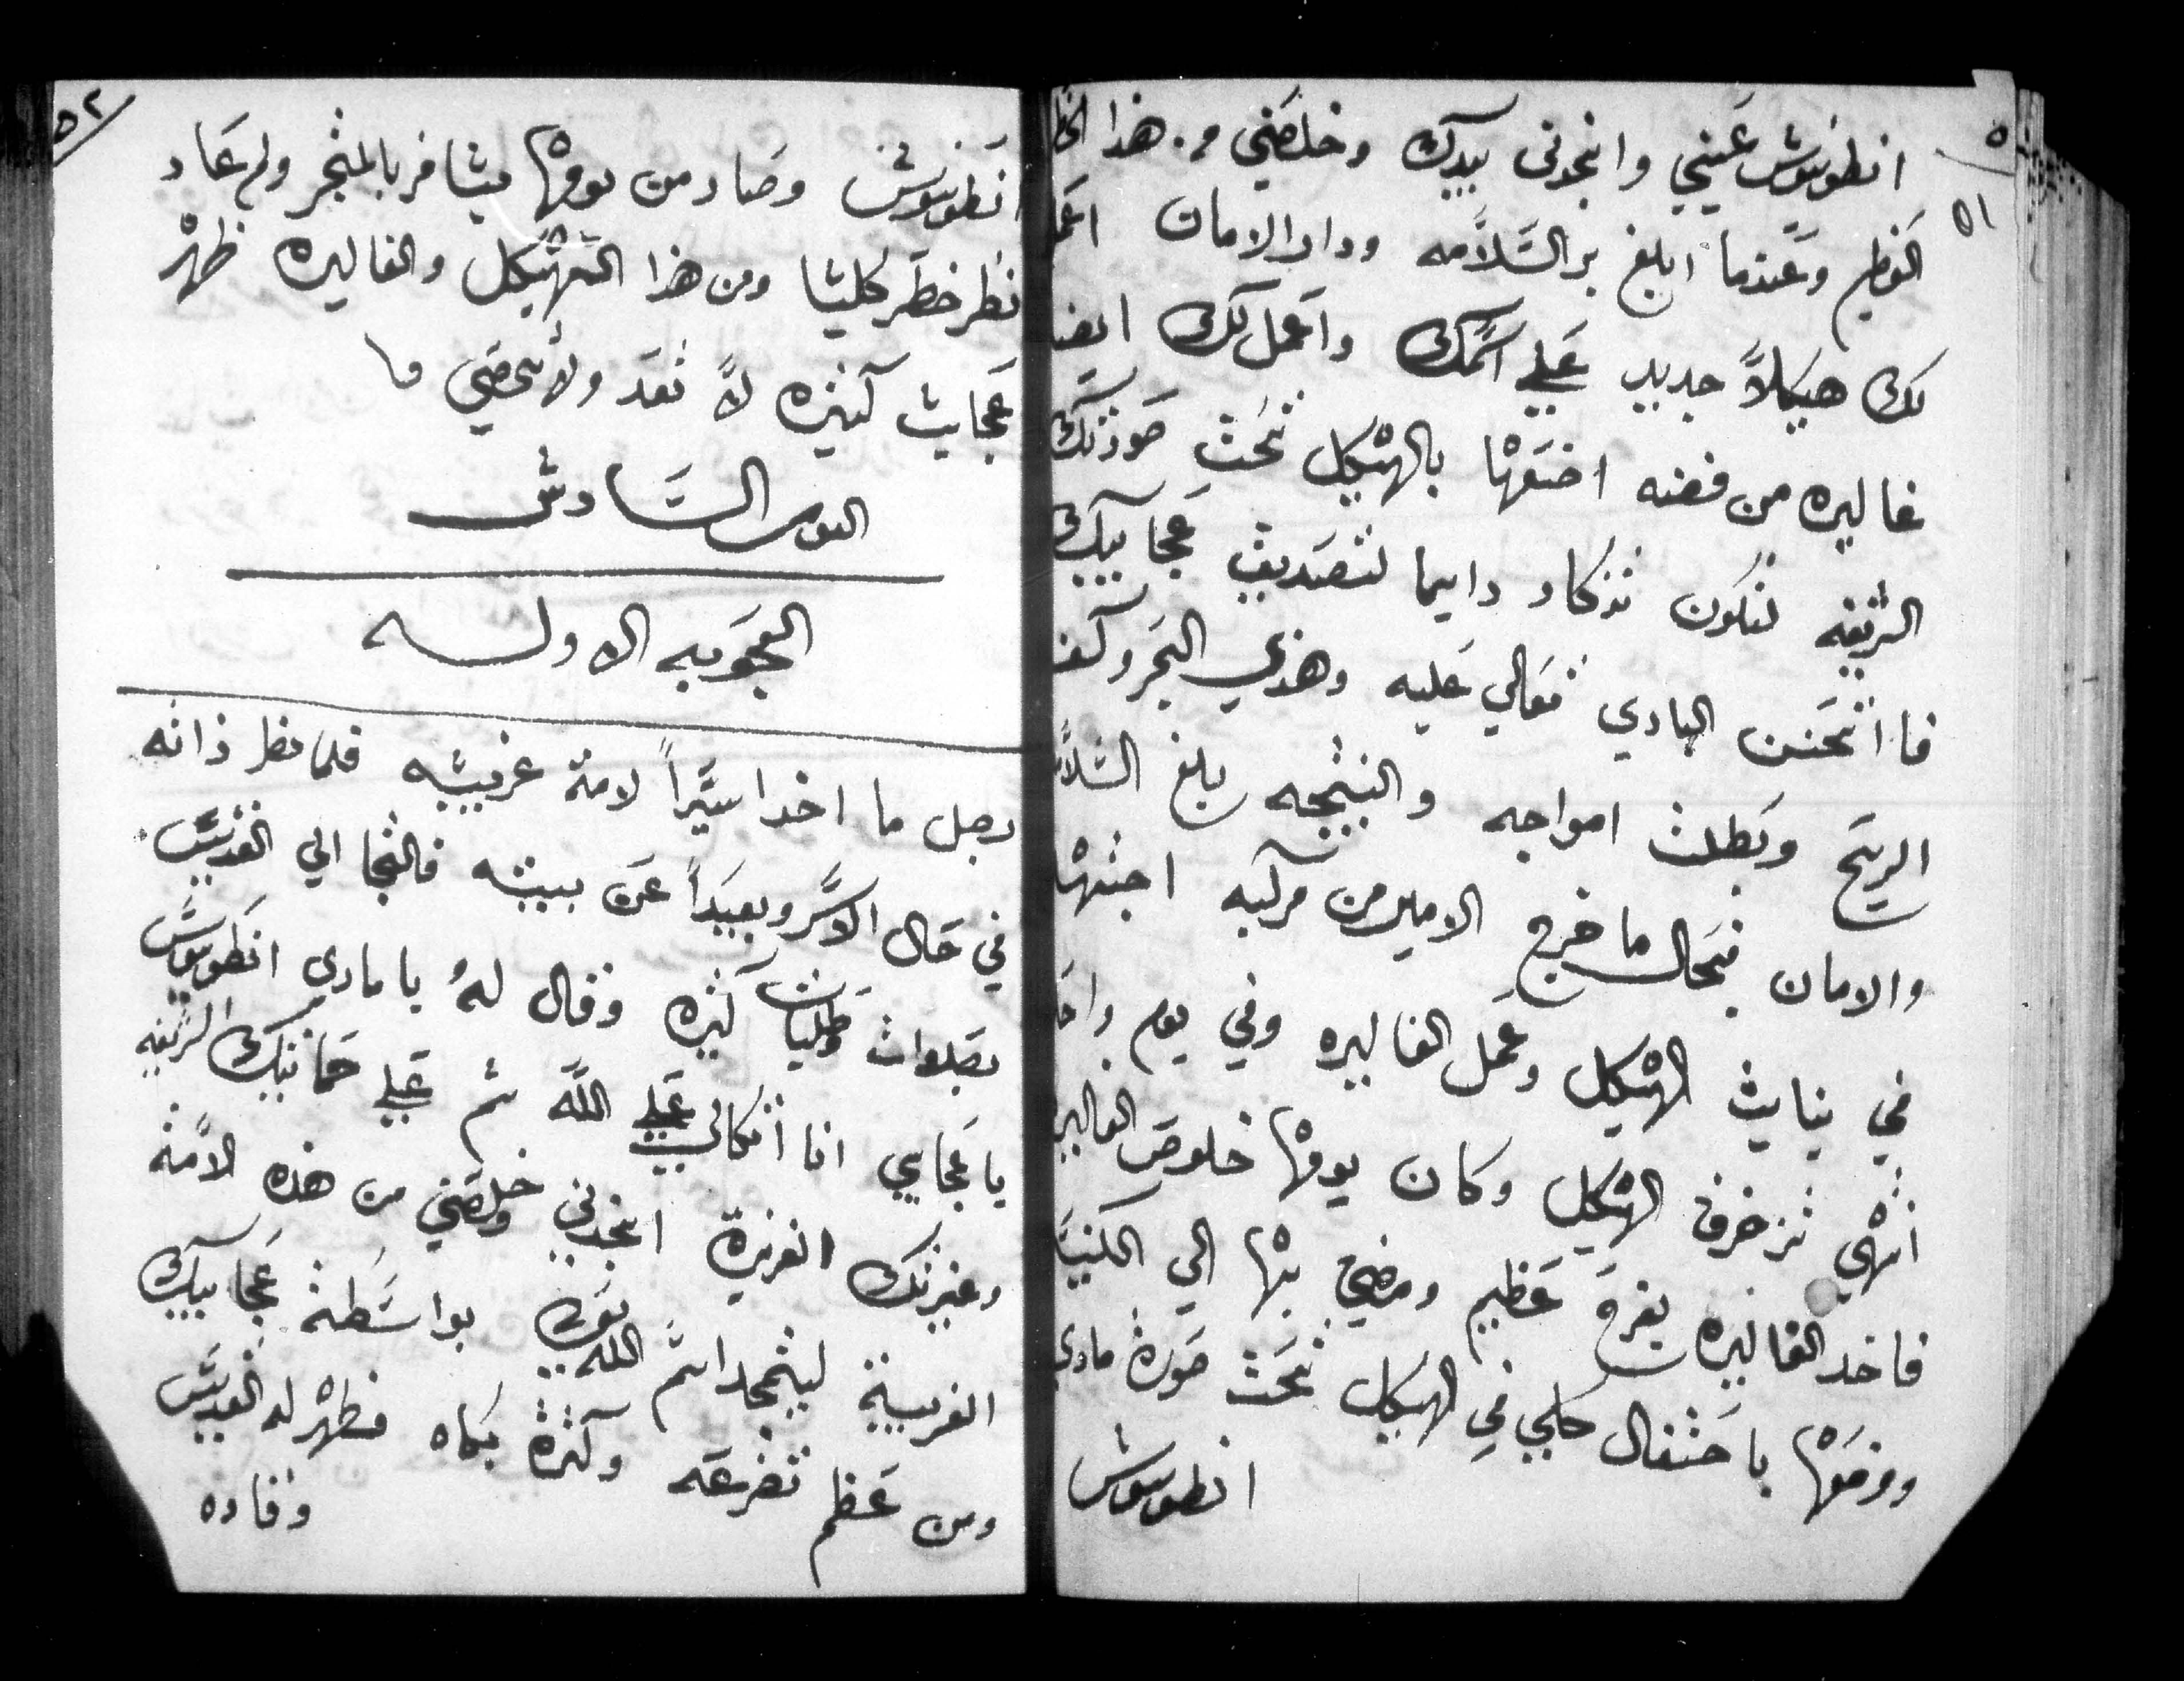 ٥١
انطونيوش عينيي وانجدنى بيدك وخلصني من هذا الخطر
العظيم وعندما ابلغ بر السلامه ودار الامان اعمل
لك هيكلاً جديد على اسمك واعمل لك ايضا
غاليره من فضه اضعها بالهيكل تحت صورتك
الشريفه لتكون تذكار دايما لتصديق عجايبك
فا اتحنن الباري تعالي عليه وهدي البحر وكف
الريح وبطلت امواجه والنتيجه بلغ السلامه
والامان فبحال ما خرج الامير من مركبه اجتهد
في بنايت الهيكل وعمل الغاليره وفي يوم واحد
انتهي تزخرف الهيكل وكان يومها خلوص الغاليره
فاخد الغاليره بفرح عظيم ومضي بها الي الكنيسه
ووضعها باحتفال كلي في الهيكل تحت صورة ماري
انطونيوش
٥٢
انطونيوش وصار من يومها يسافر بالمتجر ولم عاد
نظر خطر كليا ومن هذا الهيكل والغاليره ظهر
عجايب كثيره لا تعد ولا تحصي ما
اليوم السادس
العجوبه الاوله
رجل ما اخد اسيراً لامة غريبه فلما نظر ذاته
في حال الاسر وبعيداً عن بيته فالتجا الي القديس
بصلوات وطلبات كثيره وقال له يا ماري انطونيوس
يا عجايبي انا اتكالي على الله ثم على حمايتك الشريفه
وغيرتك الغزيرة انجدني وخلصني من هذه الامة
الغريبة ليتمجد اسم الله بواسطة عجايبك
ومن عظم تضرعه وكثرة بكاه فظهر له القديس
وقاده